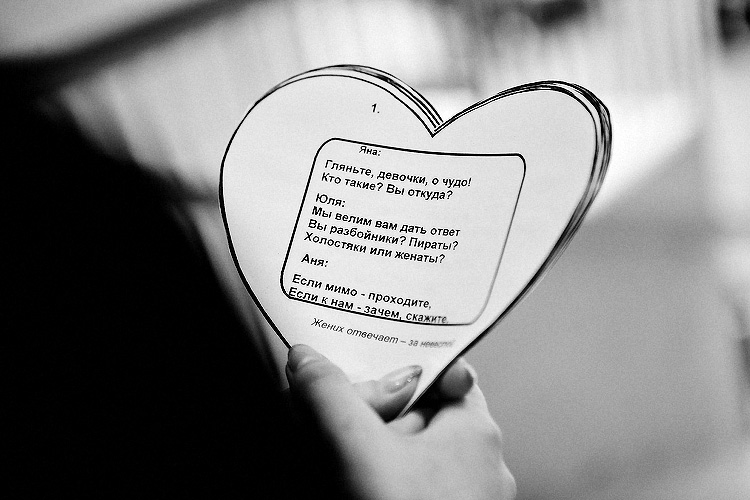 1.
Яна:
Гляньте, девочки, о чудо!
Кто такие? Вы откуда?
Юля:
Мы велим вам дать ответ
Вы разбойники? Пираты?
Холостяки или женаты?
Аня:
Если мимо - проходите,
Если к нам - зачем, скажите.
Жених отвечает – за невестой